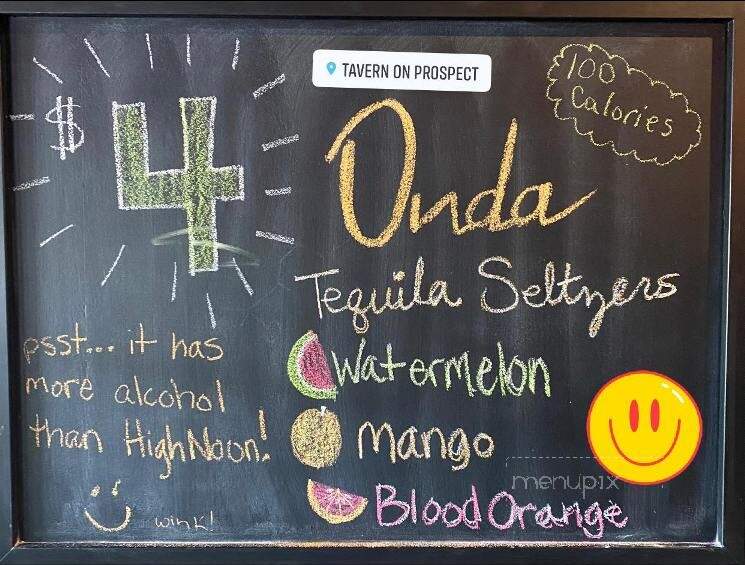 TAVERN ON PROSPECT
$4
100
Calories
Onda
Tequila Seltzers
psst... it has
more alcohol
than HighNoon!
wink!
Watermelon
Mango
Blood Orange
menupix